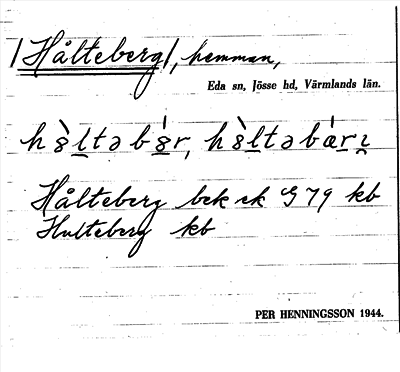 /Hålteberg/, hemman,
Eda sn, Jösse hd, Värmlands län.
Hålteberg bek ek G 79 kb
Hulteberg kb
PER HENNINGSSON 1944.